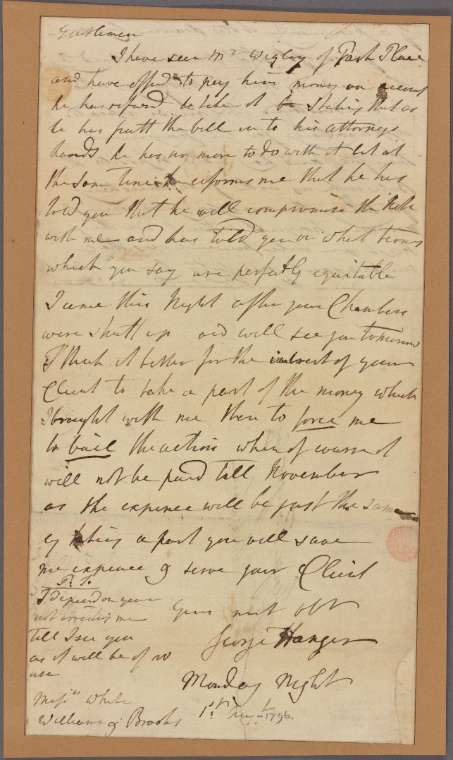 Gentlemen
I have seen Mr Wigley of Park Place
and have offerd to pay him money on account
he has refused to take it stating that as
he has putt the bill in to his attorneys
hands he has no more to do with it but at
the same time informs me that he has
told you that he will compromise the Note
with me and has told you on what terms
which you say are perfectly equitable
I came this Night after your Chambers
were shutt up and will see you tomorrow
I think it better for the interest of your
Client to take a part of the money which
I brought with me then to force me
to bail the action when of course it
will not be paid till November
as the expence will be just the same
by taking a part you will save
me expence & serve your Client
P.S.
I depend on your
not arresting me
till I see you
as it will be of no
use
Yours most obt
George Hanger
Monday Night
1st 1796.
Messrs White
Williams & Brooks